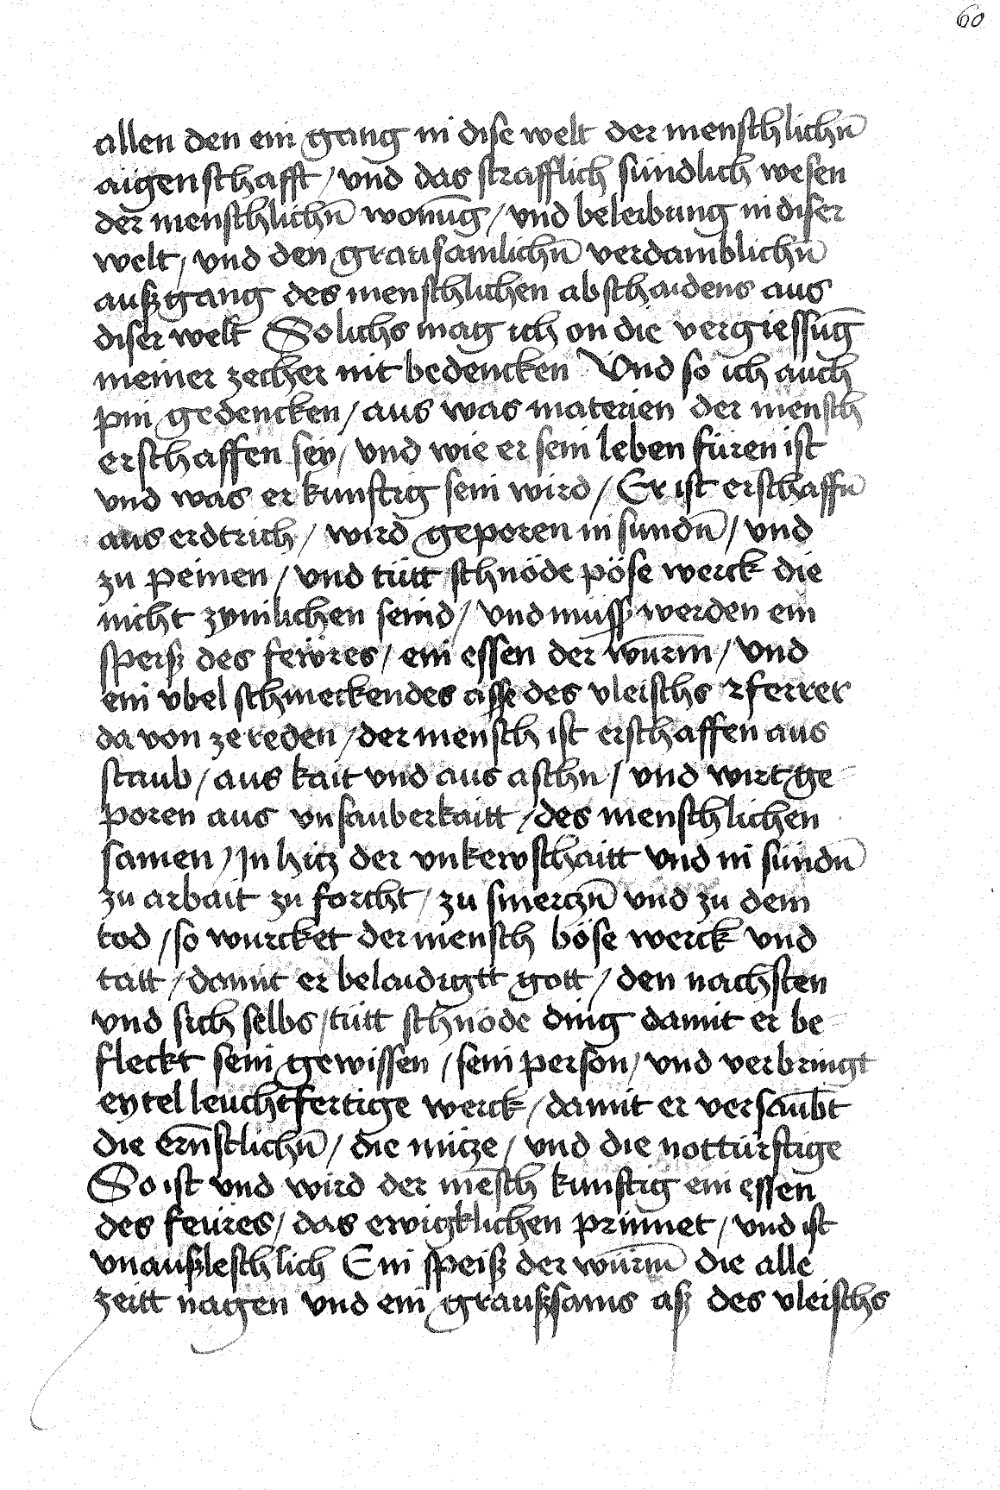 60
allen den ein gang in dise welt der menschlichn̄
aigenschafft / vnd das strafflich sündlich wesen
der menschlichn̄ wonūg / vnd beleibung in diser
welt / vnd den grausamlichn̄ verdamblichn̄
außgang des menschlichen abschaidens aus
diser welt Solichs mag ich on die vergiessūg
meiner zecher nit bedencken Vnd so ich auch
pin gedencken / aus was materien der mensch
erschaffen sey / vnd wie er sein leben füren ist
vnd was er kunftig sein wird / Er ist erschaffn̄
aus erdtrich / wird geporen in sundn̄ / vnd
zu peinen / vnd tütt schnöde pöse werck die
nicht zymlichen seind / vnd muss werden ein
speiß des fewres / ein essen der würm / vnd
ein vbel schmeckendes asse des vleischs ꝛ ferrer
da von ze reden / der mensch ist erschaffen aus
staub / aus kait vnd aus aschn / vnd wirt ge=
poren aus vnsauberkaitt / des menschlichen
samen / In hitz der vnkewschaitt vnd in sündn̄
zu arbait zu forcht / zu smerczn̄ vnd zu dem
tod / so wurcket der mensch böse werck vnd
tatt / damit er belaidigtt gott / den nachsten
vnd sich selbs / tütt schnöde ding damit er be=
fleckt sein gewissen / sein person / vnd verbringt
eytel leuchtfertige werck / damit er versaūbt
die ernstlichn̄ / die nütze / vnd die nottürftige
So ist vnd wird der mēsch kunftig ein essen
des feüres / das ewigklichen prinnet / vnd ist
vnaußleschlich Ein speiß der würm̄ die alle
zeitt nagen vnd ein graußsams aß des vleischs